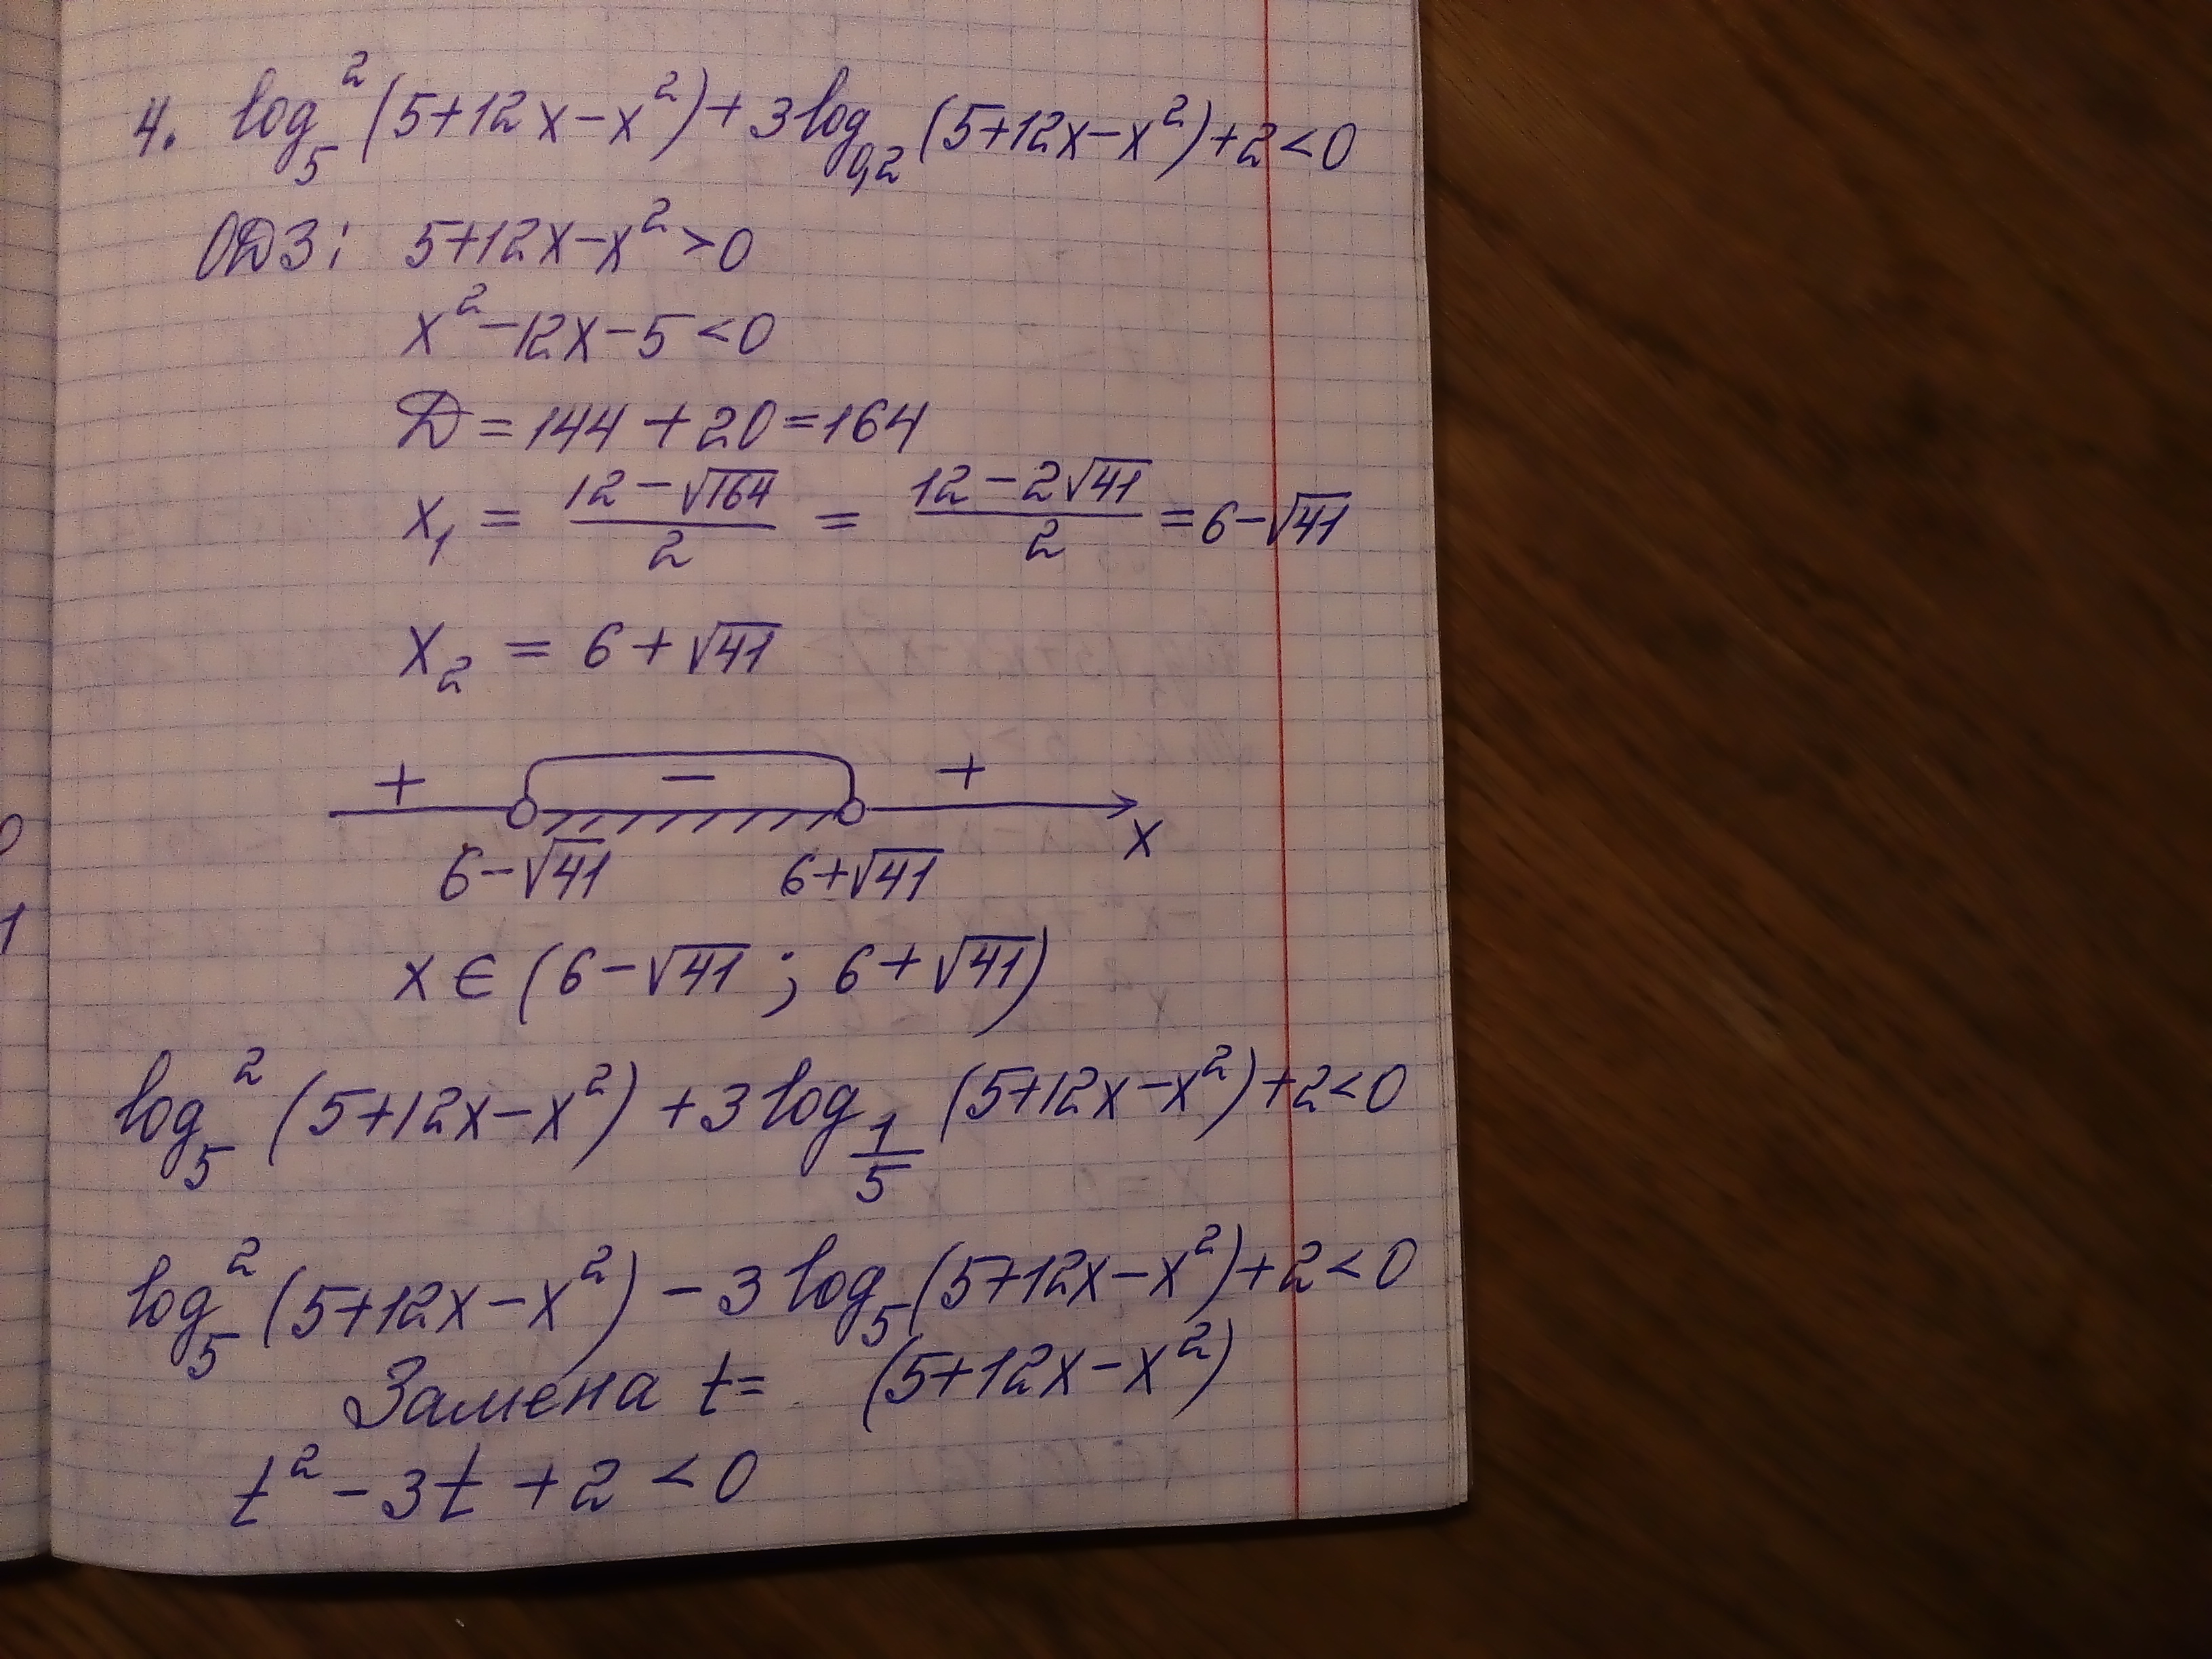 4. log₅²(5+12x-x²)+3log₀,₂(5+12x-x²)+2<0
ОДЗ: 5+12x-x²>0
x²-12x-5<0
Д=144+20=164
x₁ = (12-√164)/2 = (12-2√41)/2 =6-√41
x₂ = 6+√41
+ - +
x
6-√41 6+√41
x∈(6-√41; 6+√41)
log₅²(5+12x-x²)+3log_(1/5)(5+12x-x²)+2<0
log₅²(5+12x-x²)-3log₅(5+12x-x²)+2<0
Замена t= (5+12x-x²)
t²-3t+2<0